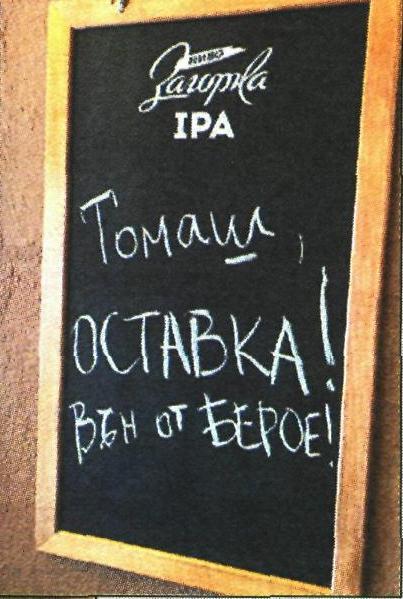 Загорка
IPA
Томаш,
ОСТАВКА!
Вън от БЕРОЕ!